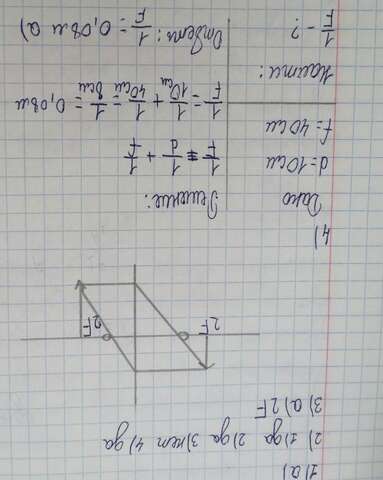 1) а)
2) 1) да 2) да 3) нет 4) да
3) а) 2F
2F
2F
4)
Дано
d=10см
f=40см
Найти:
1/F - ?
Решение:
1/F = 1/d + 1/f
1/F = 1/10см + 1/40см = 1/8см = 0,08м
Ответ: 1/F = 0,08м а)